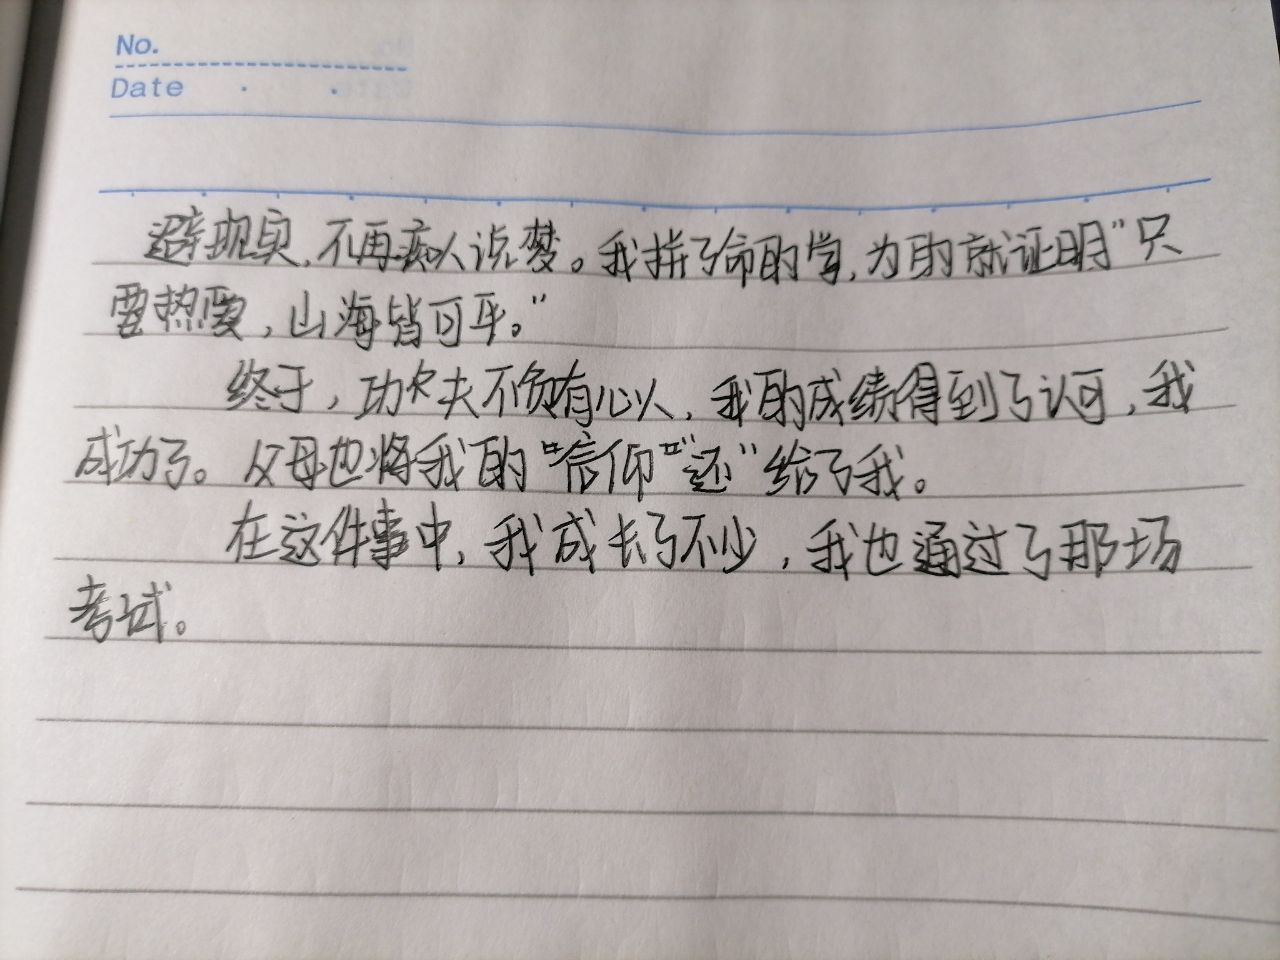 No.
Date
避现实,不再痴人说梦。我拼了命的学,为的就证明"只
要热爱,山海皆可平。"
终于,功夫不负有心人,我的成绩得到了认可,我
成功了。父母也将我的"信仰""还"给了我。
在这件事中,我成长了不少,我也通过了那场
考试。